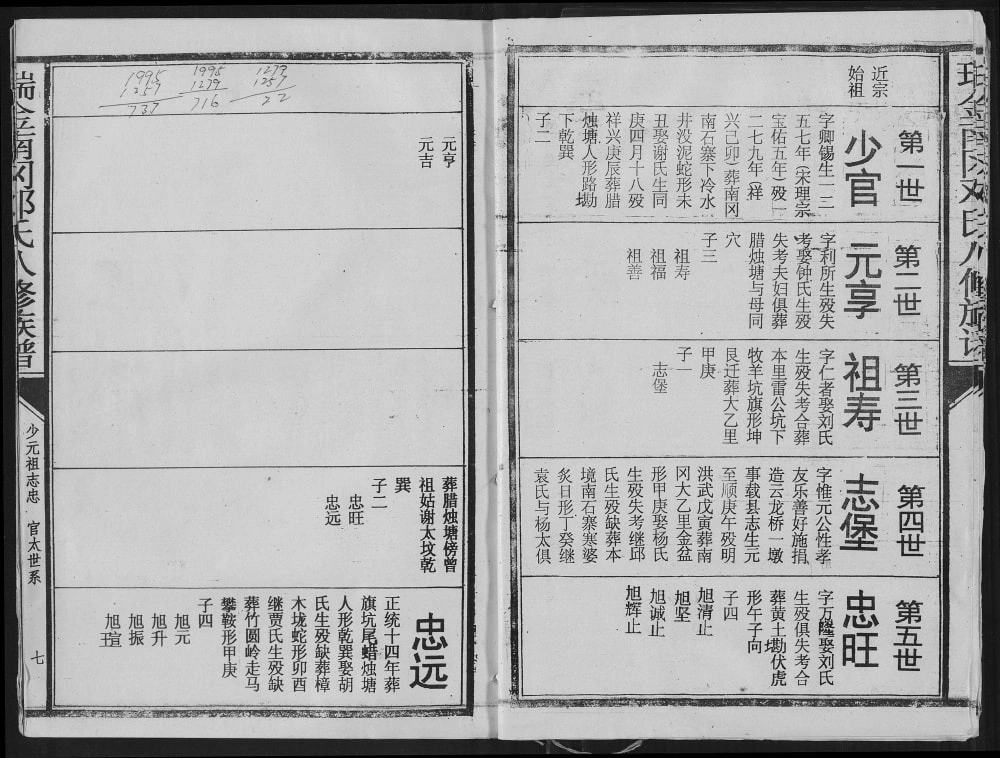 近宗
始祖
第一世
少官
字卿锡生一二
五七年（宋理宗
宝佑五年）殁一
二七九年（祥
兴己卯）葬南冈
南石寨下冷水
井没泥蛇形未
丑娶谢氏生同
庚四月十八殁
祥兴庚辰葬腊
烛塘人形路墈
下乾巽
子二
元亨
元吉
第二世
元亨
字利所生殁失
考娶钟氏生殁
失考夫妇俱葬
腊烛塘与母同
穴
子三
祖寿
祖福
祖善
第三世
祖寿
字仁者娶刘氏
生殁失考合葬
本里雷公坑下
牧羊坑旗形坤
艮迁葬大乙里
甲庚
子一
志堡
第四世
志堡
字惟元公性孝
友乐善好施捐
造云龙桥一墩
事载县志生元
至顺庚午殁明
洪武戊寅葬南
冈大乙里金盆
形甲庚娶杨氏
生殁失考继邱
氏生殁缺葬本
境南石寨寒婆
炙日形丁癸继
袁氏与杨太俱
葬腊烛塘傍曾
祖姑谢太坟乾
巽
子二
忠旺
忠远
第五世
忠旺
字万隆娶刘氏
生殁俱失考合
葬黄土墈伏虎
形午子向
子四
旭清止
旭坚
旭诚止
旭辉止
忠远
正统十四年葬
旗坑尾蜡烛塘
人形乾巽娶胡
氏生殁缺葬樟
木垅蛇形卯酉
继贾氏生殁缺
葬竹圆岭走马
攀鞍形甲庚
子四
旭元
旭升
旭振
旭宣
1273
1257
22
1995
1279
716
1995
1257
737
少元祖志忠
官太世系
七